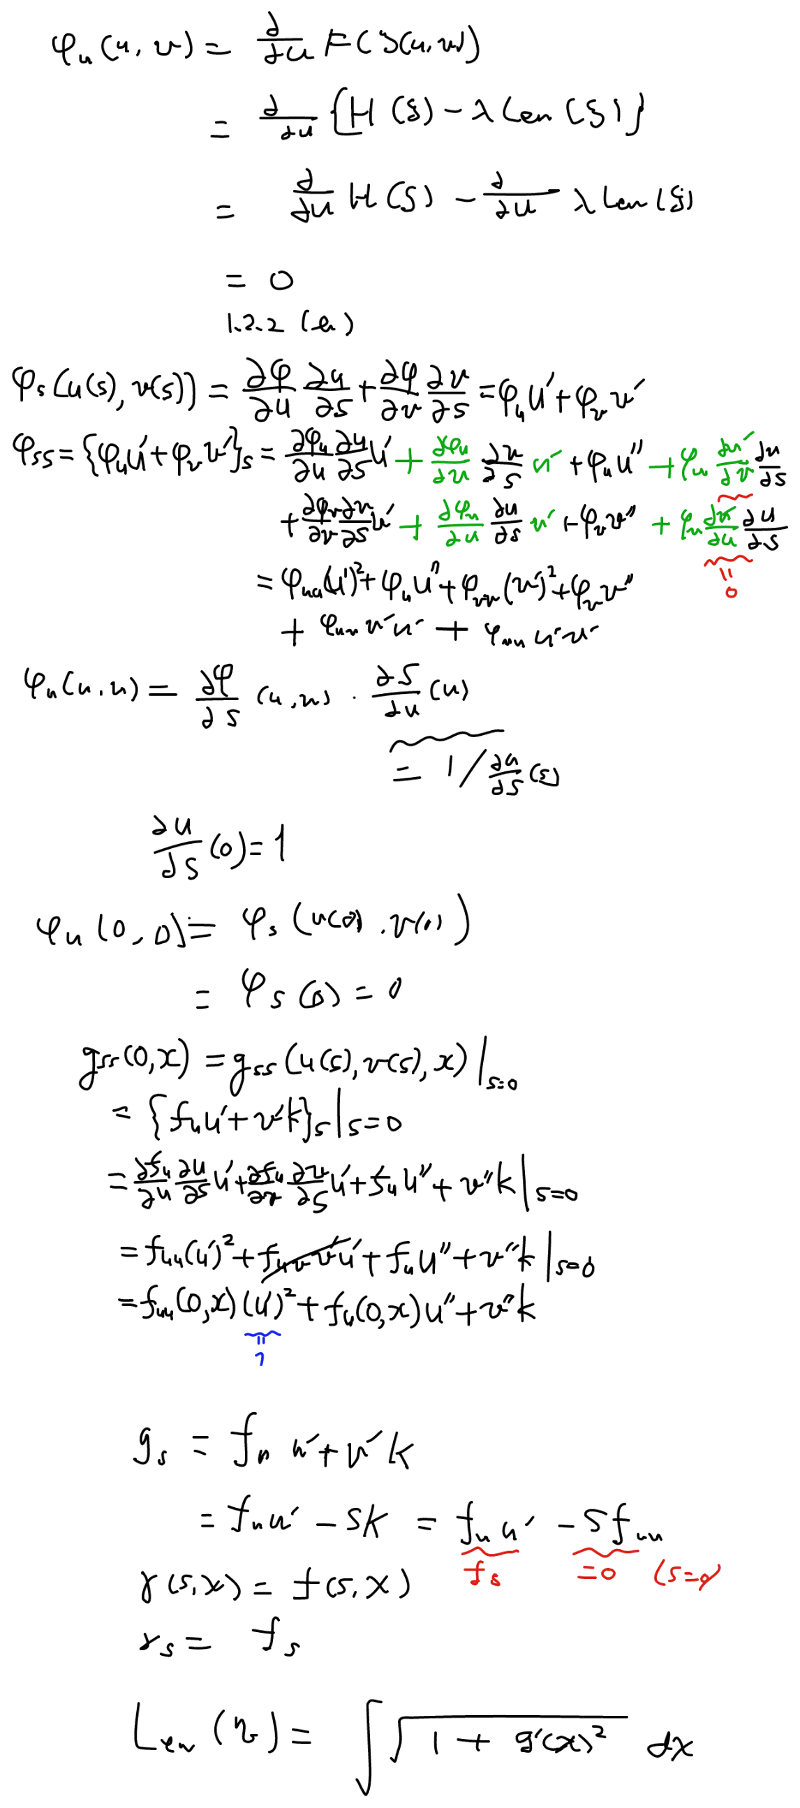 φ_u(u, v) = ∂/∂u F(ζ(u, v))
= ∂/∂u {H(ξ) − λ Len(ξ)}
= ∂/∂u H(ξ) − ∂/∂u λ Len(ξ)
= 0
1.2.2 (a)
φ_s(u(s), v(s)) = ∂φ/∂u ∂u/∂s + ∂φ/∂v ∂v/∂s = φ_u u' + φ_v v'
φ_ss = {φ_u u' + φ_v v'}_s = ∂φ_u/∂u ∂u/∂s u' + ∂φ_u/∂v ∂v/∂s u' + φ_u u'' + φ_u ∂u'/∂v ∂v/∂s
+ ∂φ_v/∂v ∂v/∂s v' + ∂φ_v/∂u ∂u/∂s v' + φ_v v'' + φ_v ∂v'/∂u ∂u/∂s
= φ_uu(u')² + φ_u u'' + φ_vv(v')² + φ_v v''
= 0
+ φ_uv v'u' + φ_vu u'v'
φ_u(u, v) = ∂φ/∂s (u, v) · ∂s/∂u (u)
= 1 / ∂u/∂s (s)
∂u/∂s (0) = 1
φ_u(0, 0) = φ_s(u(0), v(0))
= φ_s(0) = 0
g_ss(0, x) = g_ss(u(s), v(s), x)|_s=0
= {f_u u' + v'k}_s|_s=0
= ∂f_u/∂u ∂u/∂s u' + ∂f_u/∂v ∂v/∂s u' + f_u u'' + v''k|_s=0
= f_uu(u')² + f_uv v'u' + f_u u'' + v''k|_s=0
= f_uu(0, x)(u')² + f_u(0, x)u'' + v''k
= 1
g_s = f_u u' + v'k
= f_u u' − sk = f_u u' − s f_uu
f_s = 0 (s=0)
γ(s, x) = f(s, x)
γ_s = f_s
Len(η) = ∫ √(1 + g'(x)²) dx